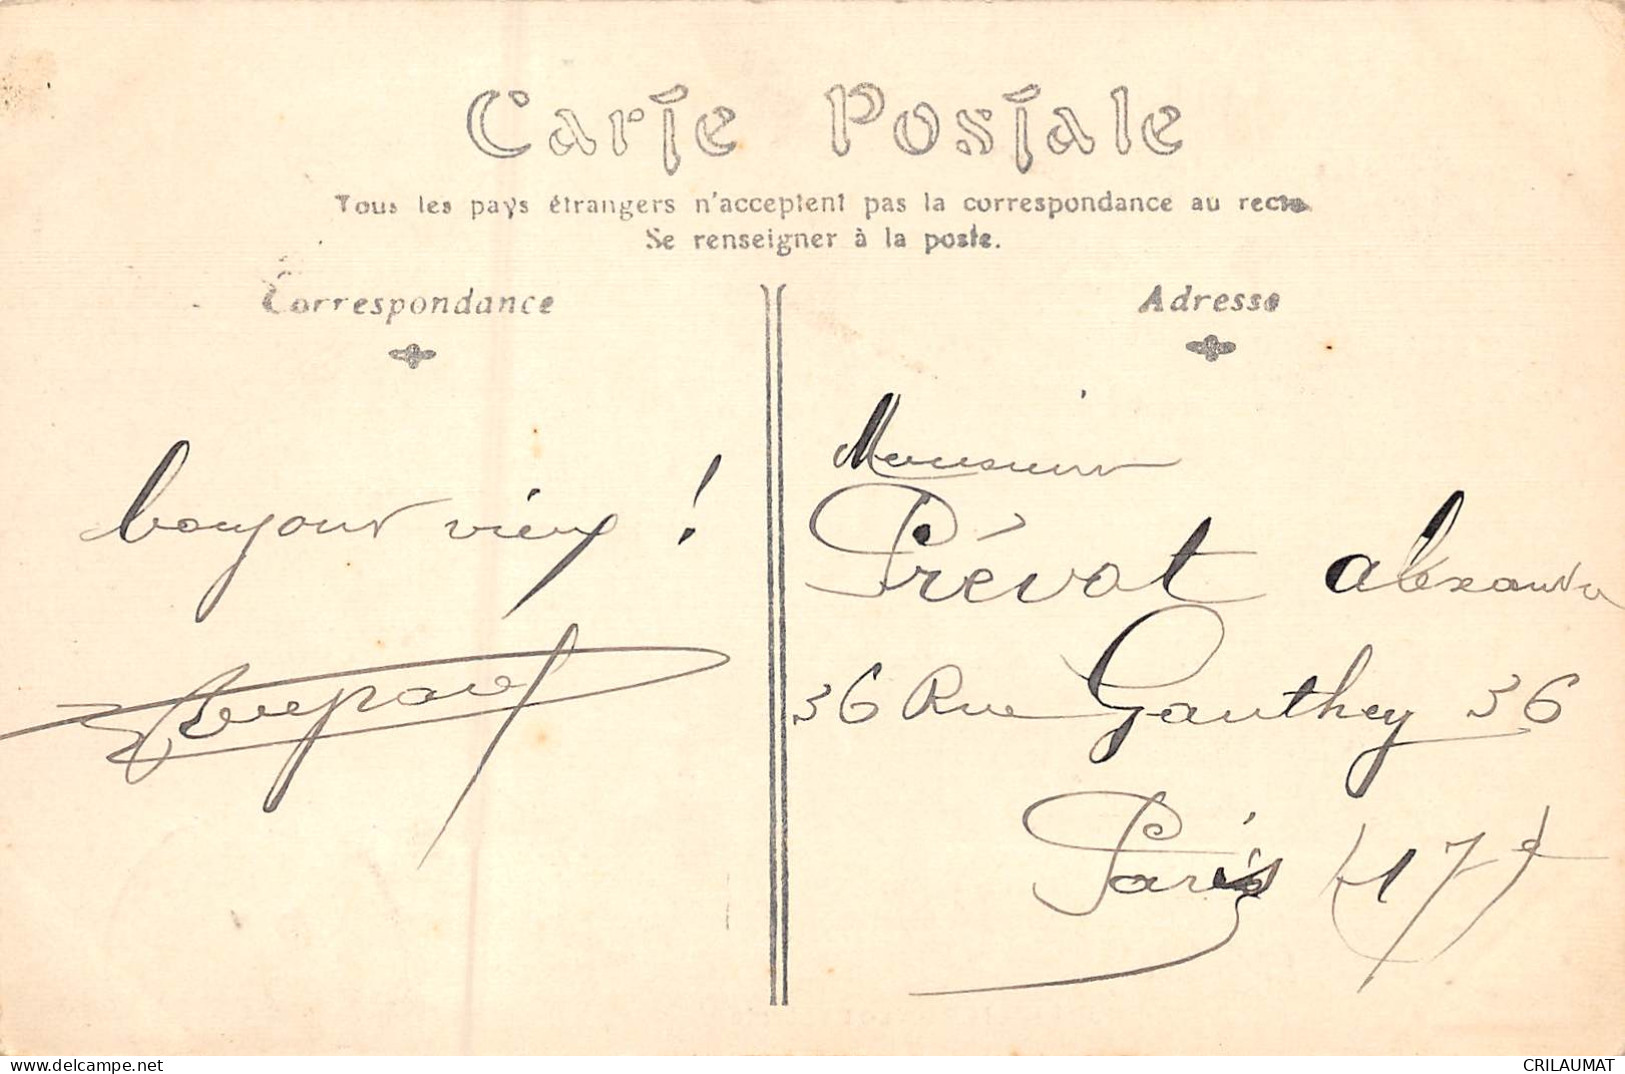 Carte Postale
Tous les pays étrangers n'acceptent pas la correspondance au recto
Se renseigner à la poste.
Correspondance
Adresse
bonjour vieux !
Monsieur
Prévot Alexandre
36 Rue Gauthey 36
Paris (17e)
CRILAUMAT